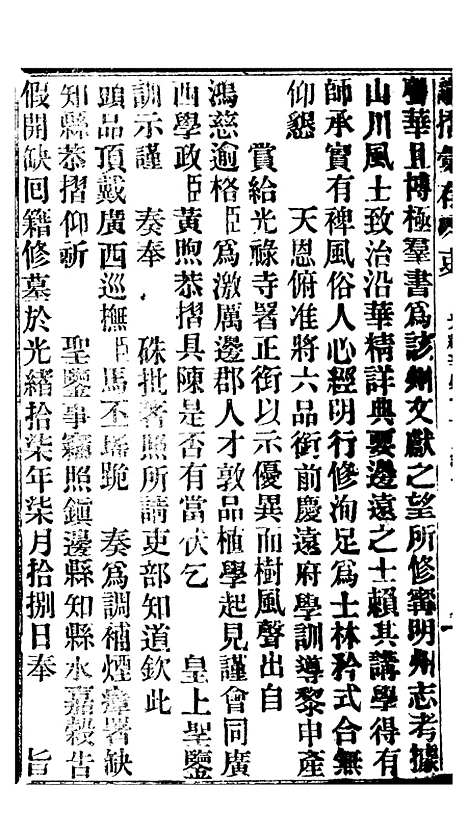 諭摺彙存
粵華且博極羣書爲該州文獻之望所修甯明州志考據
山川風土致治沿革精詳典要邊遠之士賴其講學得有
師承實有裨風俗人心經明行修洵足爲士林矜式合無
仰懇　　天恩俯准將六品銜前慶遠府學訓導黎申產
賞給光祿寺署正銜以示優異而樹風聲出自
鴻慈逾格臣爲激厲邊郡人才敦品植學起見謹會同廣
西學政臣黃煦恭摺具陳是否有當伏乞　　皇上聖鑒
訓示謹　　奏奉　　硃批著照所請吏部知道欽此
頭品頂戴廣西巡撫臣馬丕瑤跪　　奏爲調補煙瘴署缺
知縣恭摺仰祈　　聖鑒事竊照鎭邊縣知縣水嘉穀告
假開缺回籍修墓於光緒拾柒年柒月拾捌日奉　　旨